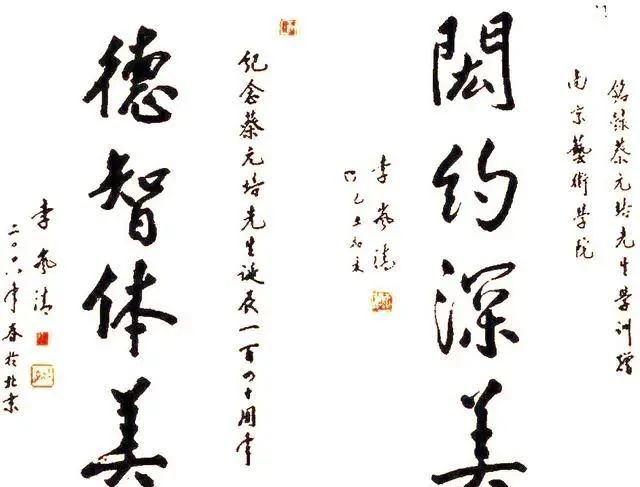 铭录蔡元培先生学训赠
南京藝術学院
闳约深美
李岚清
纪念蔡元培先生诞辰一百四十周年
德智体美
李岚清
二〇〇八年春於北京